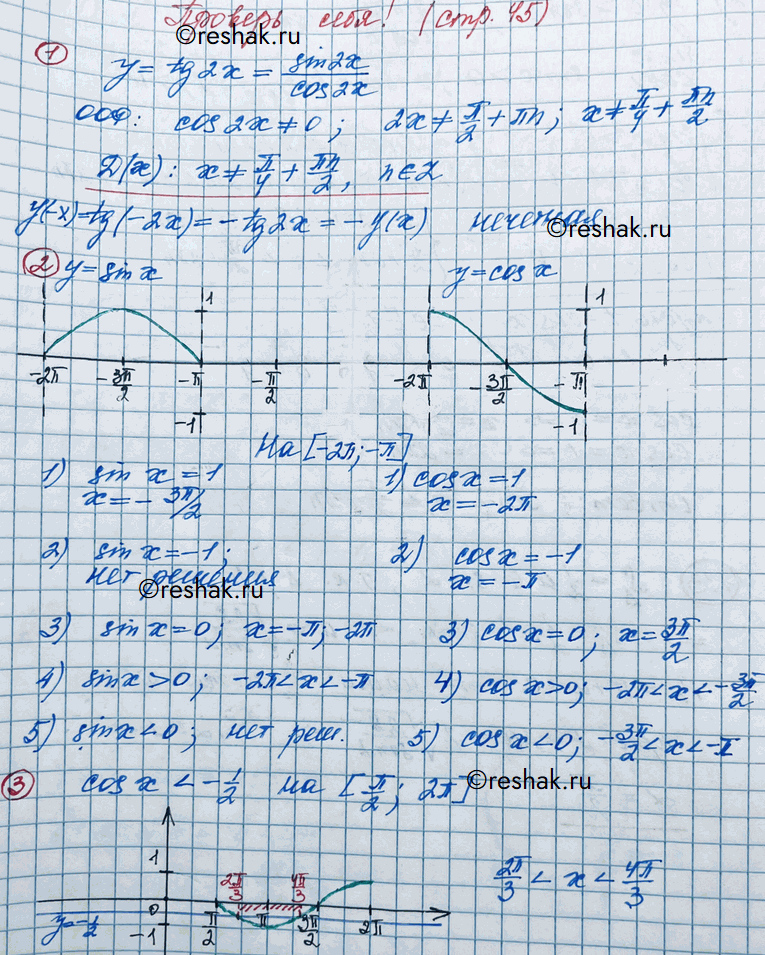 Проверь себя! (стр. 45)
©reshak.ru
1
y = tg 2x = sin2x/cos2x
ООФ: cos 2x ≠ 0; 2x ≠ π/2 + πn; x ≠ π/4 + πn/2
©reshak.ru
D(x): x ≠ π/4 + πn/2, n ∈ Z
y(-x) = tg(-2x) = -tg2x = -y(x) нечетная
©reshak.ru
2 y = sin x
y = cos x
1
1
-2π -3π/2 -π -π/2
-2π -3π/2 -π
-1
-1
На [-2π; -π]
1) sin x = 1
x = -3π/2
1) cos x = 1
x = -2π
2) sin x = -1;
нет решения
2) cos x = -1
x = -π
©reshak.ru
3) sin x = 0; x = -π; -2π
3) cos x = 0; x = 3π/2
4) sin x > 0; -2π < x < -π
4) cos x > 0; -2π < x < -3π/2
5) sin x < 0; нет реш.
5) cos x < 0; -3π/2 < x < -π
©reshak.ru
3 cos x < -1/2 на [π/2; 2π]
1
2π/3 4π/3
2π/3 < x < 4π/3
0
y = -1/2
-1
π/2 π 3π/2 2π
©reshak.ru